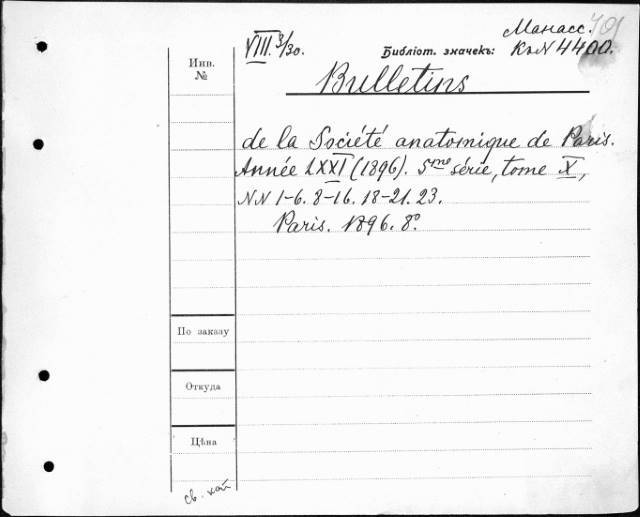 Манасс. 701
VIII. 3/30.
Библіот. значекъ: К. N 4400.
Инв.
№
Bulletins
de la Société anatomique de Paris.
Année LXXI (1896). 5me série, tome X,
NN 1-6. 8-16. 18-21. 23.
Paris. 1896. 8°
По заказу
Откуда
Цѣна
св.